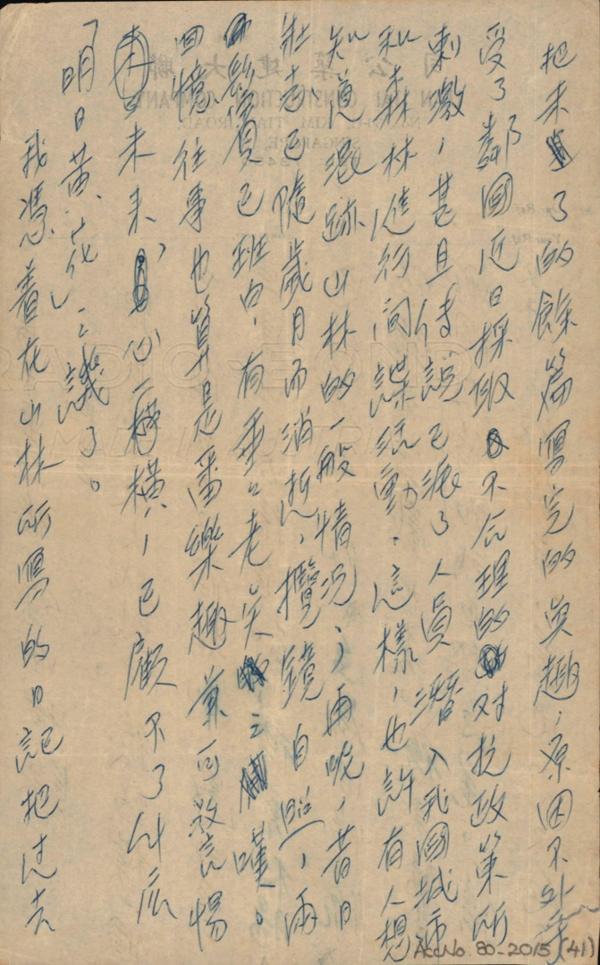 把未了的餘篇寫完的興趣，原因不外乎
受了鄰國近日採取不合理的对抗政策所
刺激，甚且傳說已派了人員潛入我國城市
和森林進行間諜活動，這樣，也許有人想
知道混跡山林的一般情况；再說，昔日
壯志已隨歲月而消愁，攬鏡自照，兩
鬂已班白，有垂垂老矣之嘆。
回憶往事也算是番樂趣兼可放言惕
未來，心一橫，已顧不了什広
「明日黄花」之譏了。
我憑着在山林所寫的日記把过去
AccNo 80-2015 (41)